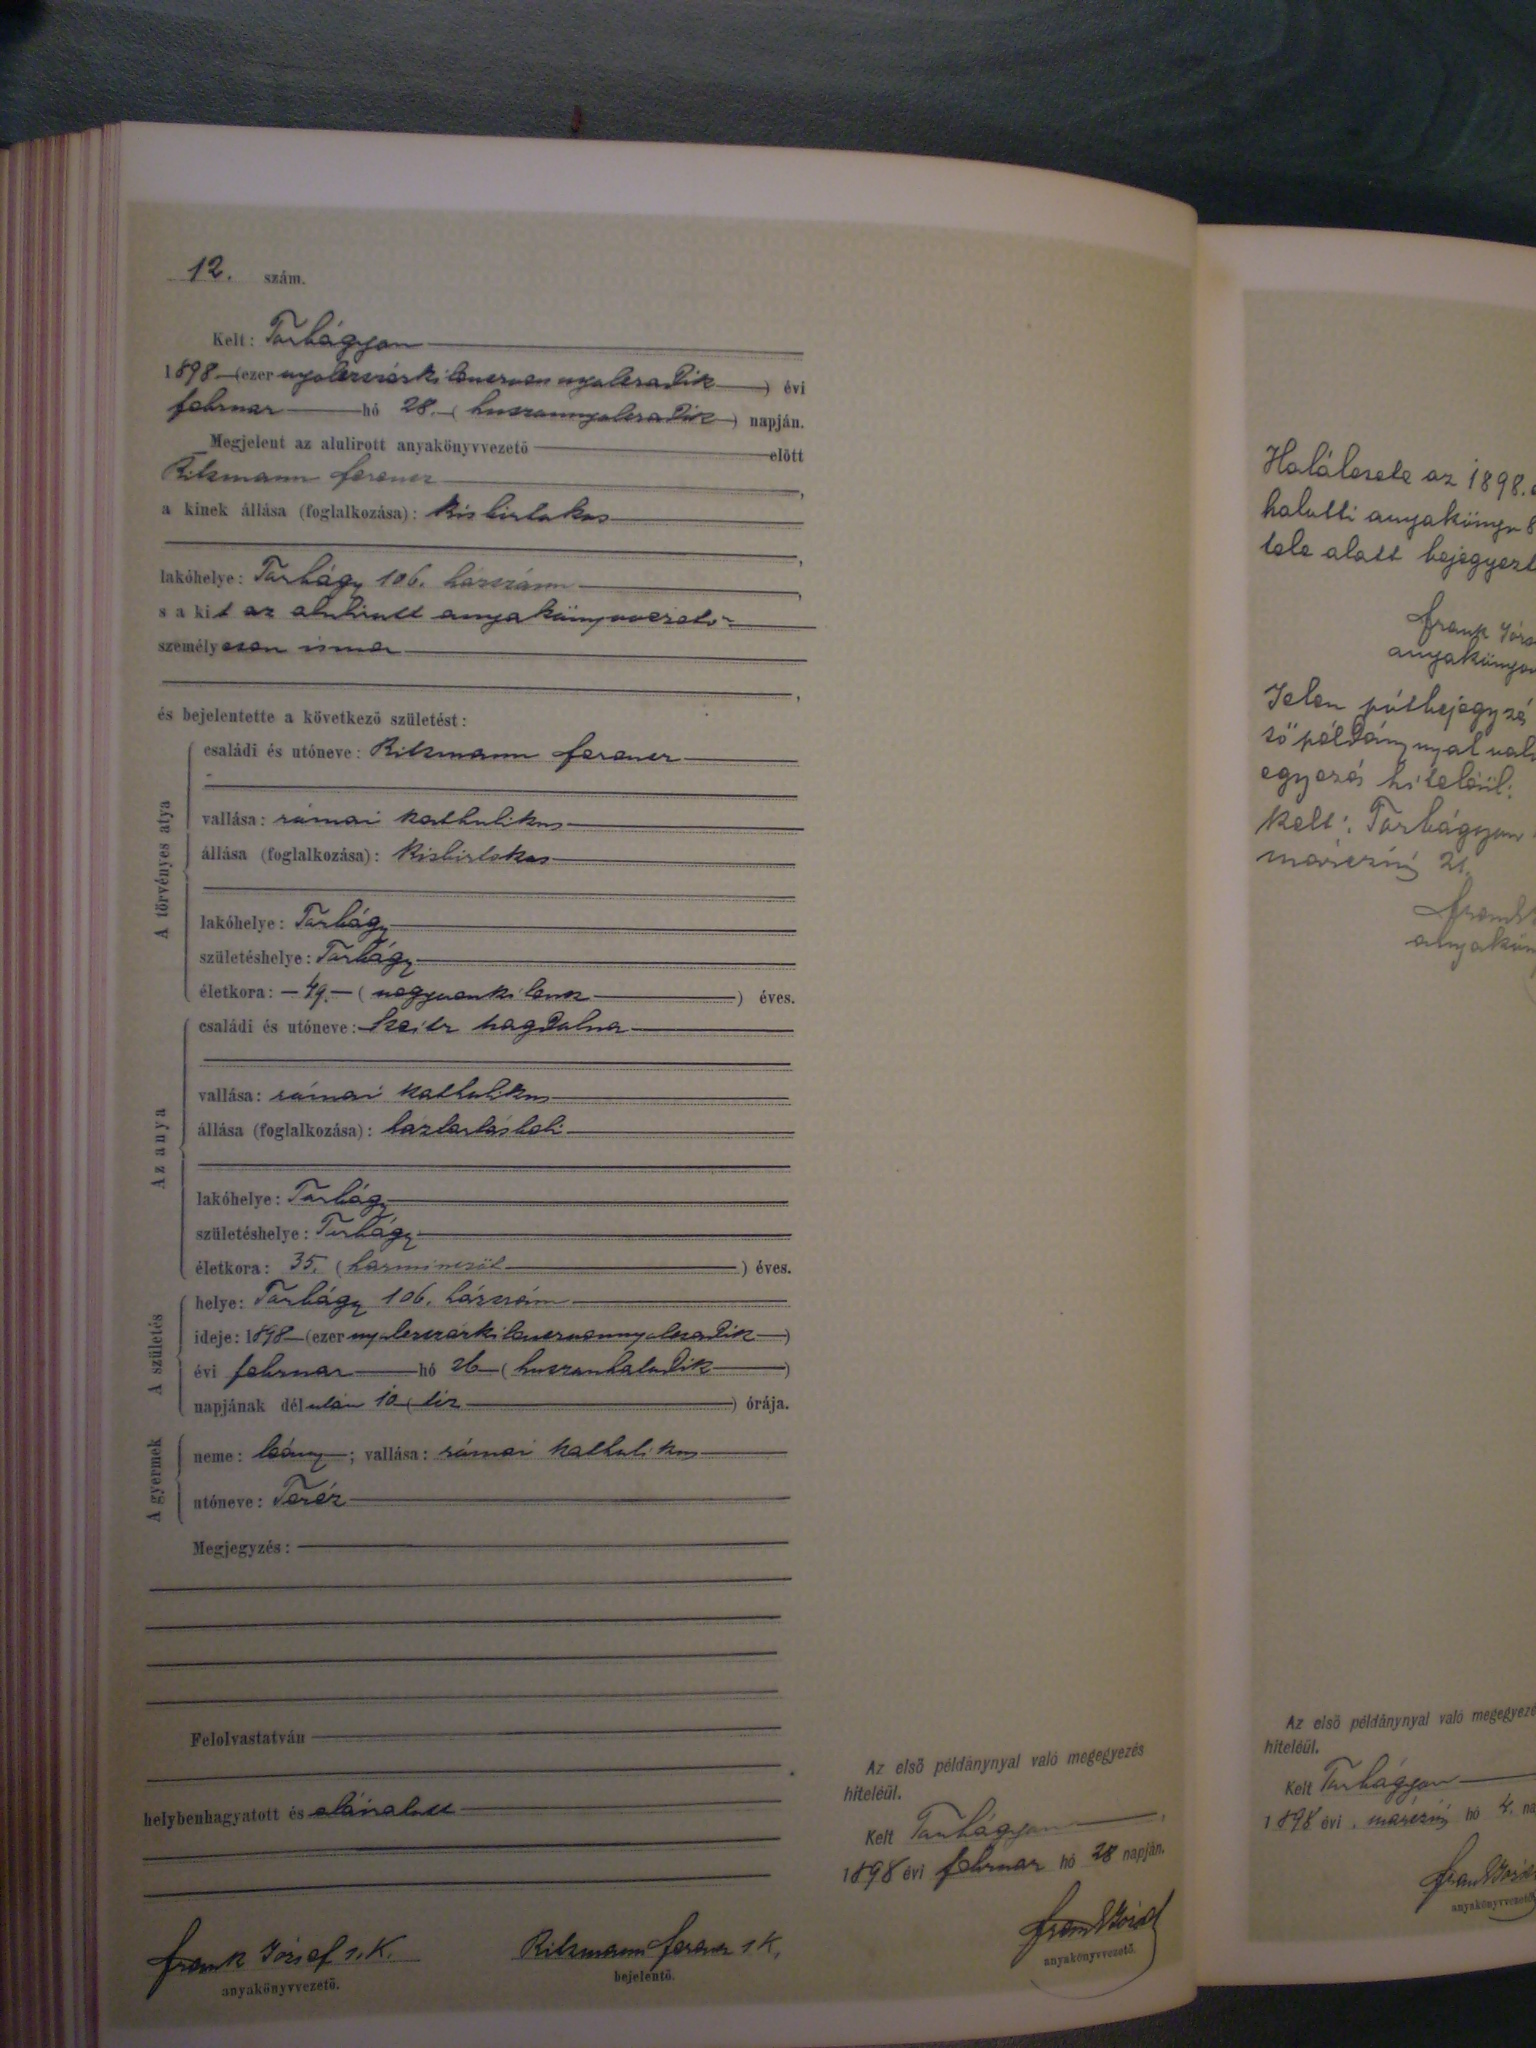 12. szám.
Kelt: Torbágyon
1898 (ezer nyolczszázkilenczvennyolczadik) évi
február hó 28. (huszonnyolczadik) napján.
Megjelent az alulirott anyakönyvvezető előtt
Ritzmann Ferencz,
a kinek állása (foglalkozása): kisbirtokos
lakóhelye: Torbágy 106. házszám,
s a kit az alulirott anyakönyvvezető
személyesen ismer
,
és bejelentette a következő születést:
A törvényes atya
családi és utóneve: Ritzmann Ferencz
vallása: római katholikus
állása (foglalkozása): kisbirtokos
lakóhelye: Torbágy
születéshelye: Torbágy
életkora: 49. (negyvenkilencz) éves.
Az anya
családi és utóneve: Magdolna
vallása: római katholikus
állása (foglalkozása): háztartásbeli
lakóhelye: Torbágy
születéshelye: Torbágy
életkora: 35. (harminczöt) éves.
A születés
helye: Torbágy 106. házszám
ideje: 1898 (ezer nyolczszázkilenczvennyolczadik)
évi február hó 26 (huszonhatodik)
napjának délután 10 (tíz) órája.
A gyermek
neme: leány; vallása: római katholikus
utóneve: Teréz
Megjegyzés:
Felolvastatván
helybenhagyatott és aláiratott
Frank József s.k.
anyakönyvvezető.
Ritzmann Ferencz s.k.
bejelentő.
Az első példánynyal való megegyezés
hiteléül.
Kelt Torbágyon,
1898 évi február hó 28 napján.
Frank József
anyakönyvvezető.
Halálesete az 1898.
halotti anyakönyv 8
tele alatt bejegyezt
Frank Józs
anyakönyv
Jelen pótbejegyzés
ső példánynyal való
egyezés hiteléül:
Kelt: Torbágyon
márczius 21.
Frank
anyakön
Az első példánynyal való megegyezé
hiteléül.
Kelt Torbágyon
1898 évi márczius hó 4. na
Frank József
anyakönyvvezető